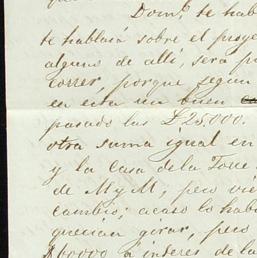 Domo. te hab
te hablará sobre el proye
alguno de alli, será p
correr, porque segun
en esta un buen
pasado las £25,000.
otra suma igual en
y la Casa de la Torre
de MyM, pero vie
cambio; acaso lo hab
querian girar, pero
$60000 á interes de la